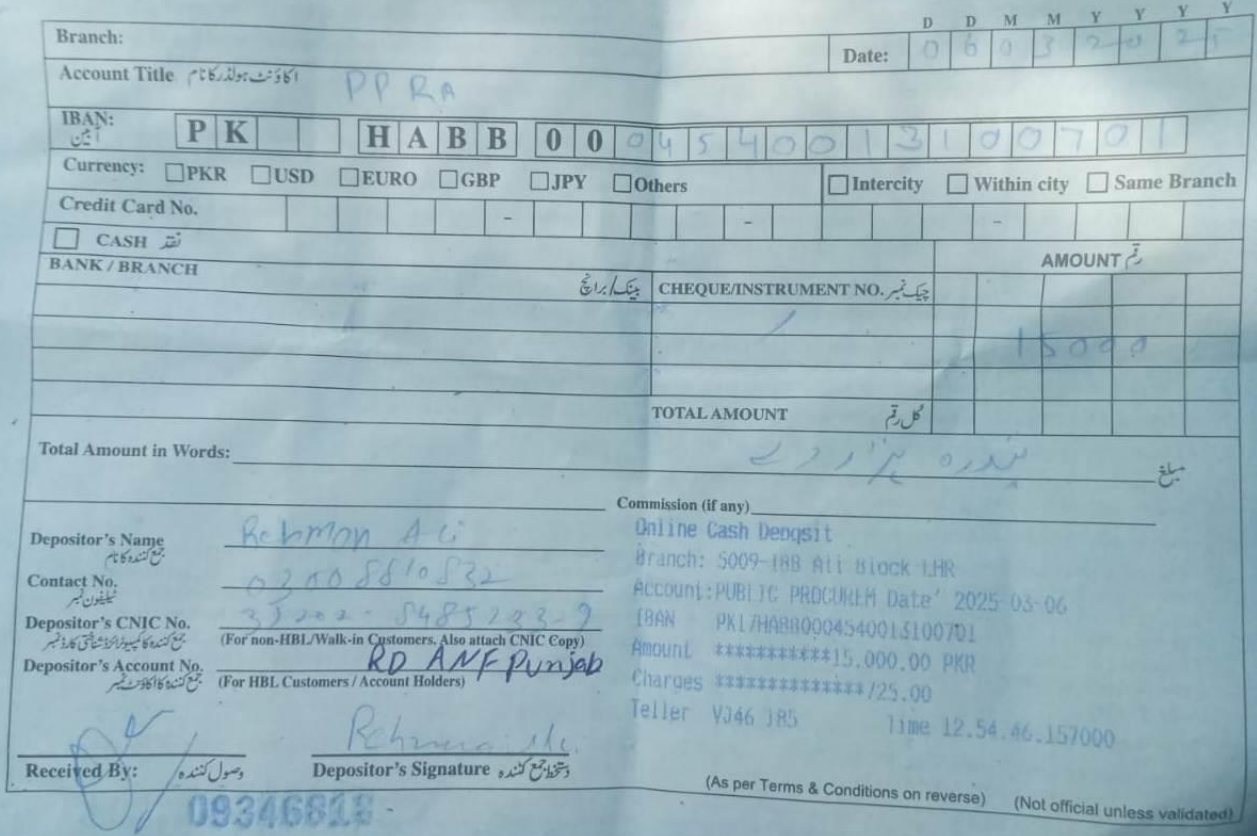 D D M M Y Y Y Y
Branch:
Date: 0 6 0 3 2 0 2 5
Account Title اکاؤنٹ ہولڈر کا نام PPRA
IBAN: PK HABB 00 0454001 3100701
آئبین
Currency: PKR USD EURO GBP JPY Others Intercity Within city Same Branch
Credit Card No. - - -
CASH نقد
AMOUNT رقم
BANK / BRANCH بینک/برانچ CHEQUE/INSTRUMENT NO. چیک نمبر
15000
TOTAL AMOUNT کل رقم
Total Amount in Words: پندرہ ہزار روپے مبلغ
Commission (if any)
Depositor's Name Rehman Ali
جمع کنندہ کا نام
Contact No. 03008810832
ٹیلیفون نمبر
Depositor's CNIC No. 35202-8485233-9
جمع کنندہ کا کمپیوٹرائزڈ شناختی کارڈ نمبر (For non-HBL/Walk-in Customers, Also attach CNIC Copy)
RD ANF Punjab
Depositor's Account No. (For HBL Customers / Account Holders)
جمع کنندہ کا اکاؤنٹ نمبر
Online Cash Deposit
Branch: 5009-188 Ali Block LHR
Account:PUBLIC PROCUREM Date' 2025-03-06
IBAN PK17HABB0004540013100701
Amount ***********15.000.00 PKR
Charges **************725.00
Teller VJ46 Time 12.54.46.157000
Received By: وصول کنندہ Depositor's Signature دستخط جمع کنندہ
(As per Terms & Conditions on reverse) (Not official unless validated)
09346818